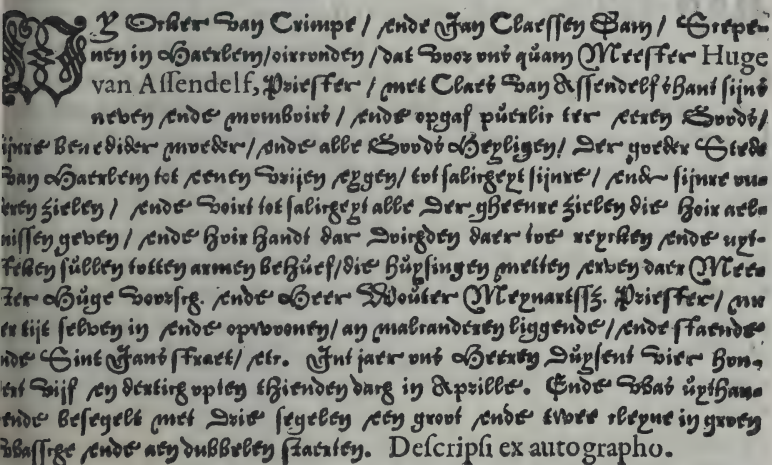 WY Ocker van Crimpe / ende Jan Claessen Bam / Scepe-
nen in Haerlem/oirconden/dat voor ons quam Meester Huge
van Assendelf, Priester / met Claes van Assendelfs hant sijns
neven ende momboirs / ende opgaf puerlic ter eeren Goods/
sijnre Benedider moeder/ende alle Goods Heyligen/ der goeder Stede
van Haerlem tot eenen vrijen eygen/ tot salicheyt sijnre / ende sijnre ou-
deren zielen / ende voirt tot salicheyt alle der gheenre zielen die hoir ael-
missen geven / ende hoir handt dar doichden daer toe reycken ende uyt-
steken sullen totten armen behuef/die huysingen metten erven daer Mee-
ster Huge voorscr. ende Heer Wouter Meynartssz. Priester/ nu
ter tijt selven in ende opwoonen/an malcanderen liggende/ende staende
inde Sint Jans straet/ etc. Int jaer ons Heeren duysent vier hon-
dert vijf en dertich opten thienden dach in Aprille. Ende was uythan-
gende besegelt met drie segelen een groot ende twee cleyne in groen
wassche ende aen dubbelen staerten. Descripsi ex autographo.